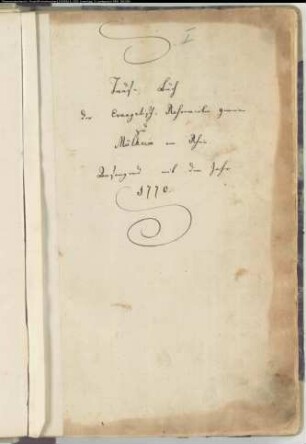 I
Tauf-Buch
der Evangelisch Reformirten
zu
Mülheim am Rhein
Anfangend mit dem Jahr
1770